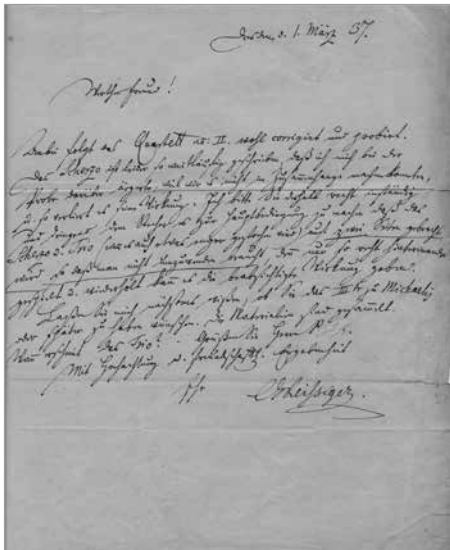 Dresden, d. 1. März 37.
Werther Freund!
Dabei folgt das Quartett no: II. wohl corrigirt und probirt.
Das Scherzo ist leider so weitläufig geschrieben, daß ich mich bei der
Probe darüber ärgerte, weil wir es nicht im Zusammenhange nachkonnten,
u. so verliert es seine Wirkung. Ich bitte Sie deshalb recht inständig
dem Stecher es zur Hauptbedingung zu machen daß das
Scherzo u. Trio auch etwas enger gestochen auf zwei Seiten gebracht
wird, so daß man nicht umzuwenden braucht, denn nur so recht hintereinander
gespielt u. wiederholt kann es die beabsichtigte Wirkung geben.
Lassen Sie mich nächstens wissen, ob Sie das III zu Michaelis
oder später zu haben wünschen. Die Materialien sind gesammelt.
Wann erscheint das Trio? Grüßen Sie Herrn
Mit Hochachtung u. freundschaftl. Ergebenheit
Ihr
CGReissiger.